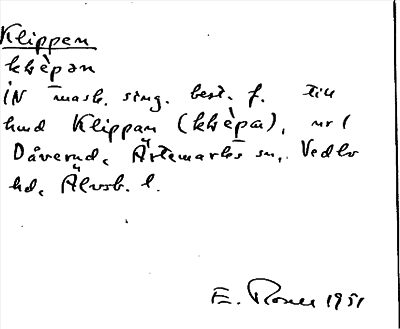 Klippen
klèpən
iN mask. sing. best. f. till
hmd Klippan (klèpa), nr 1
Dåverud, Ärtemarks sn, Vedbo
hd, Älvsb. l.
E. Rosell 1951